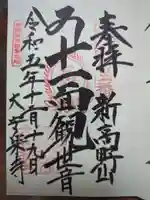 奉拝 新高野山
十一面觀世音
令和五年十一月十九日
大安楽寺